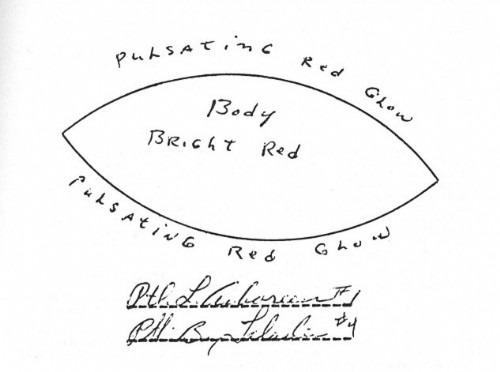 PULSATING Red Glow
Body
BRight Red
PULSATING Red Glow
Ptl. L. #1
Ptl. #4